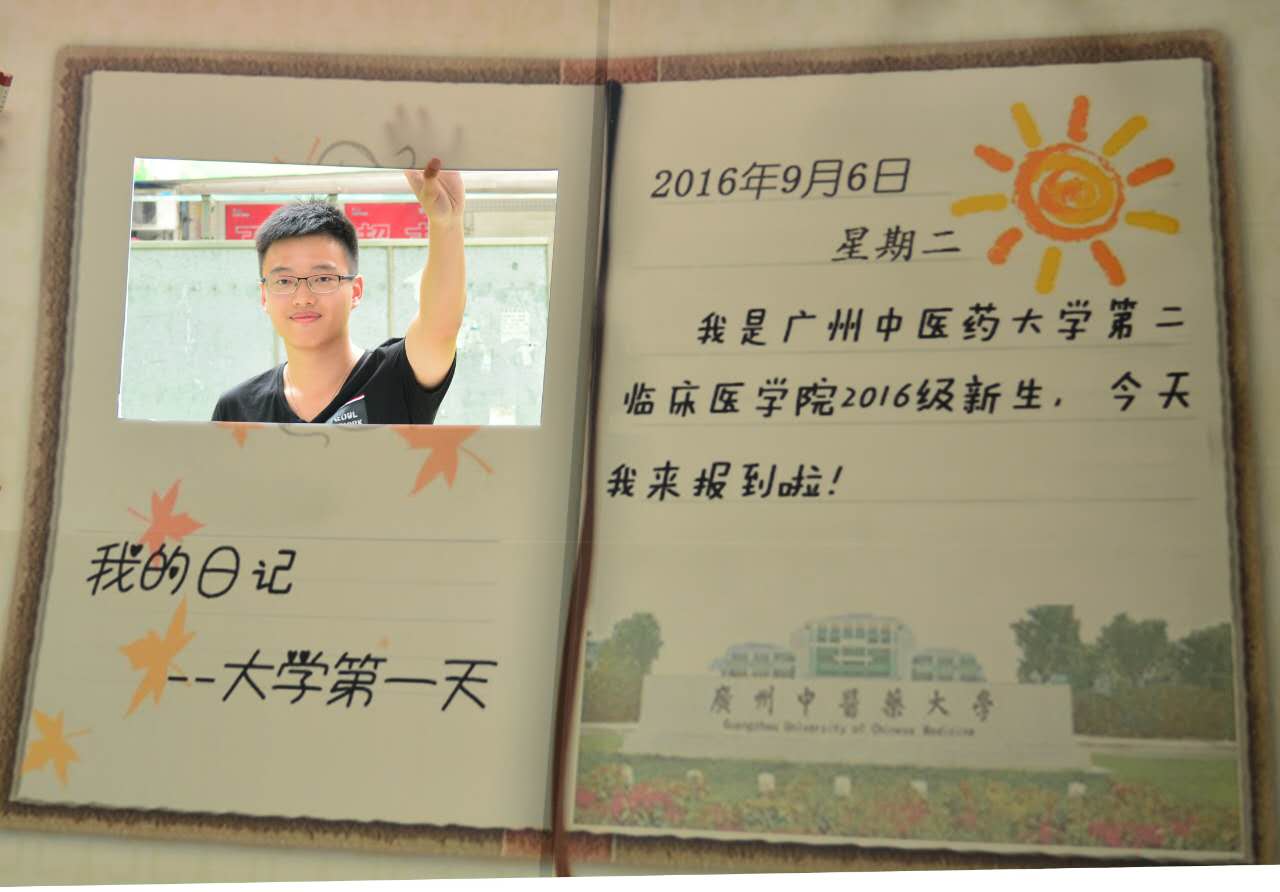 SEOUL
我的日记
--大学第一天
2016年9月6日
星期二
我是广州中医药大学第二
临床医学院2016级新生, 今天
我来报到啦!
廣州中醫藥大學
Guangzhou University of Chinese Medicine